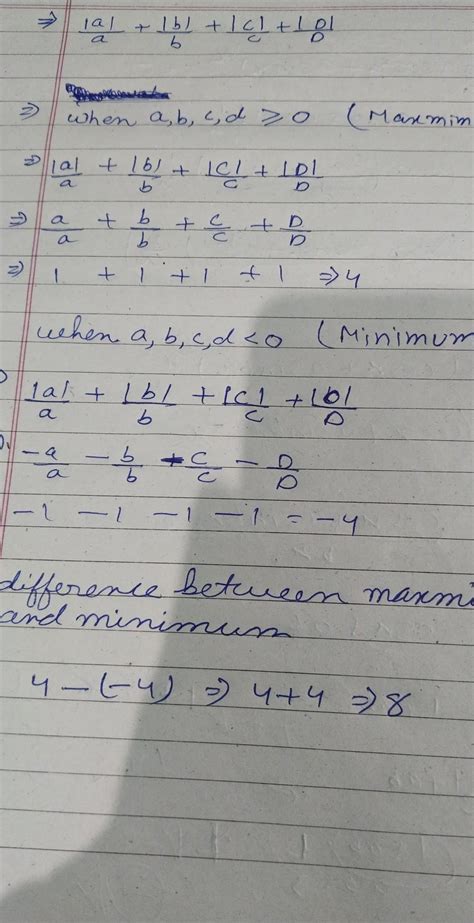 ⇒ |a|/a + |b|/b + |c|/c + |D|/D
⇒ when a, b, c, d ≥ 0 (Maxmim
⇒ |a|/a + |b|/b + |c|/c + |D|/D
⇒ a/a + b/b + c/c + D/D
⇒ 1 + 1 + 1 + 1 ⇒ 4
when a, b, c, d < 0 (Minimum
|a|/a + |b|/b + |c|/c + |D|/D
-a/a - b/b - c/c - D/D
-1 -1 -1 -1 = -4
difference between maxmi
and minimum
4 - (-4) ⇒ 4+4 ⇒ 8